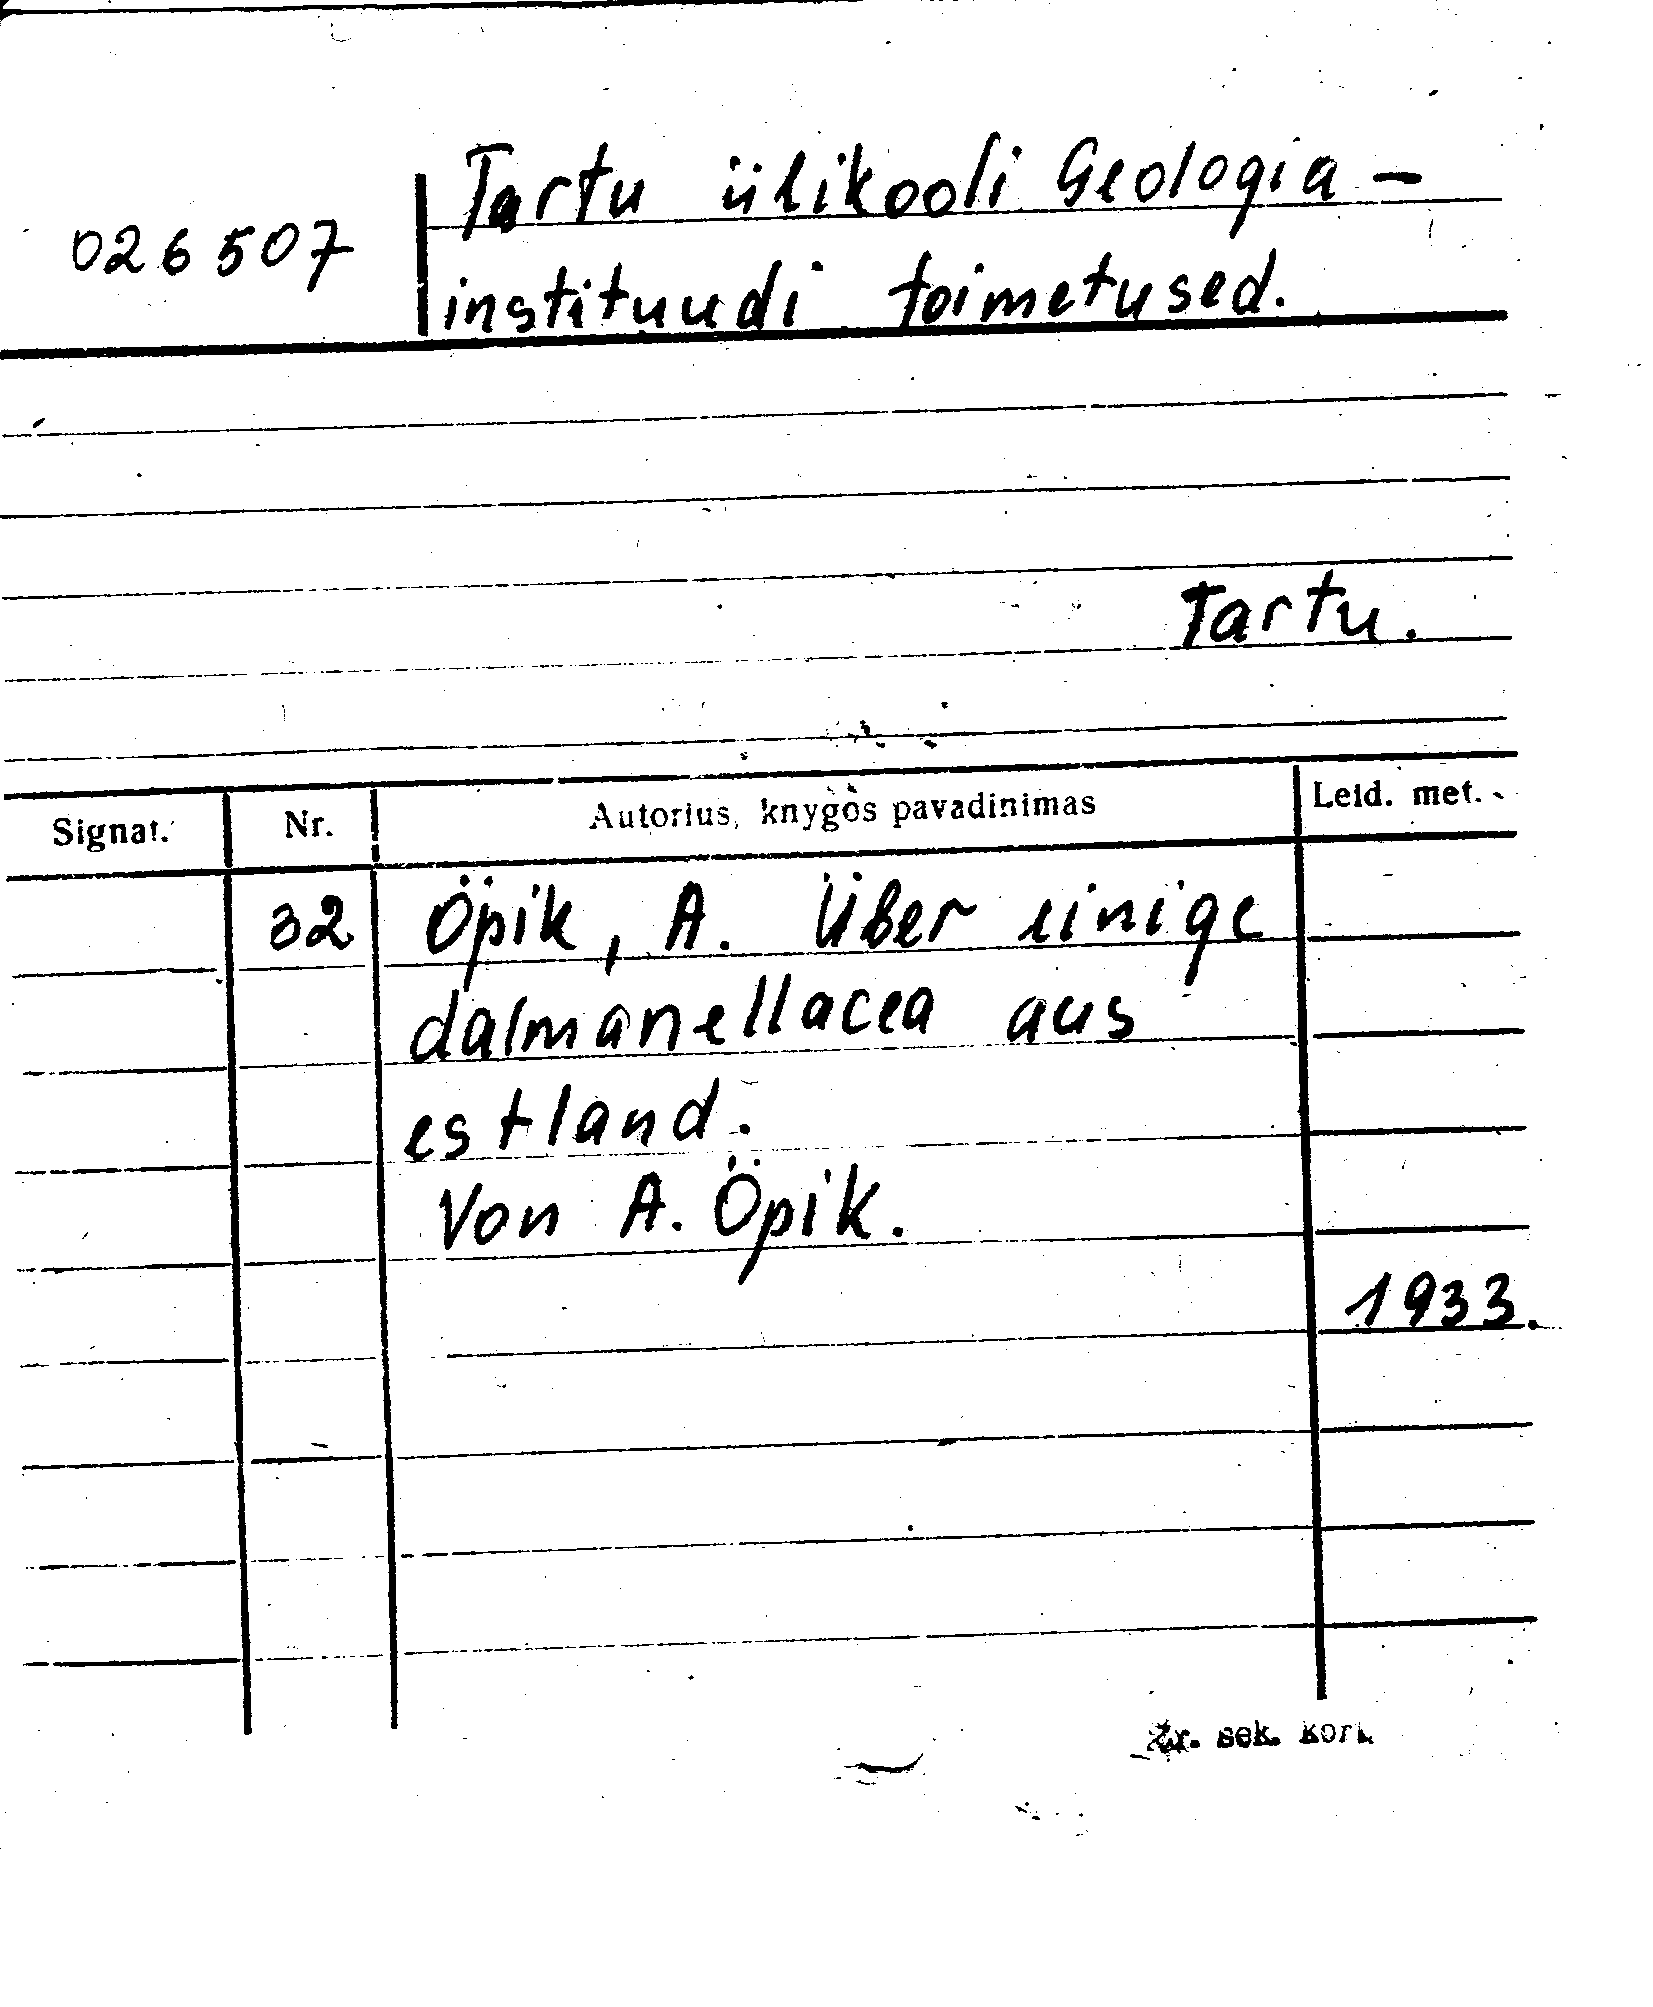 Tartu ülikooli Geologia -
026507
instituudi toimetused.
Tartu.
Signat. Nr. Autorius, knygos pavadinimas Leid. met.
32 Öpik, A. Über einige
dalmanellacea aus
estland.
Von A. Öpik.
1933.
Žr. sek. kort.